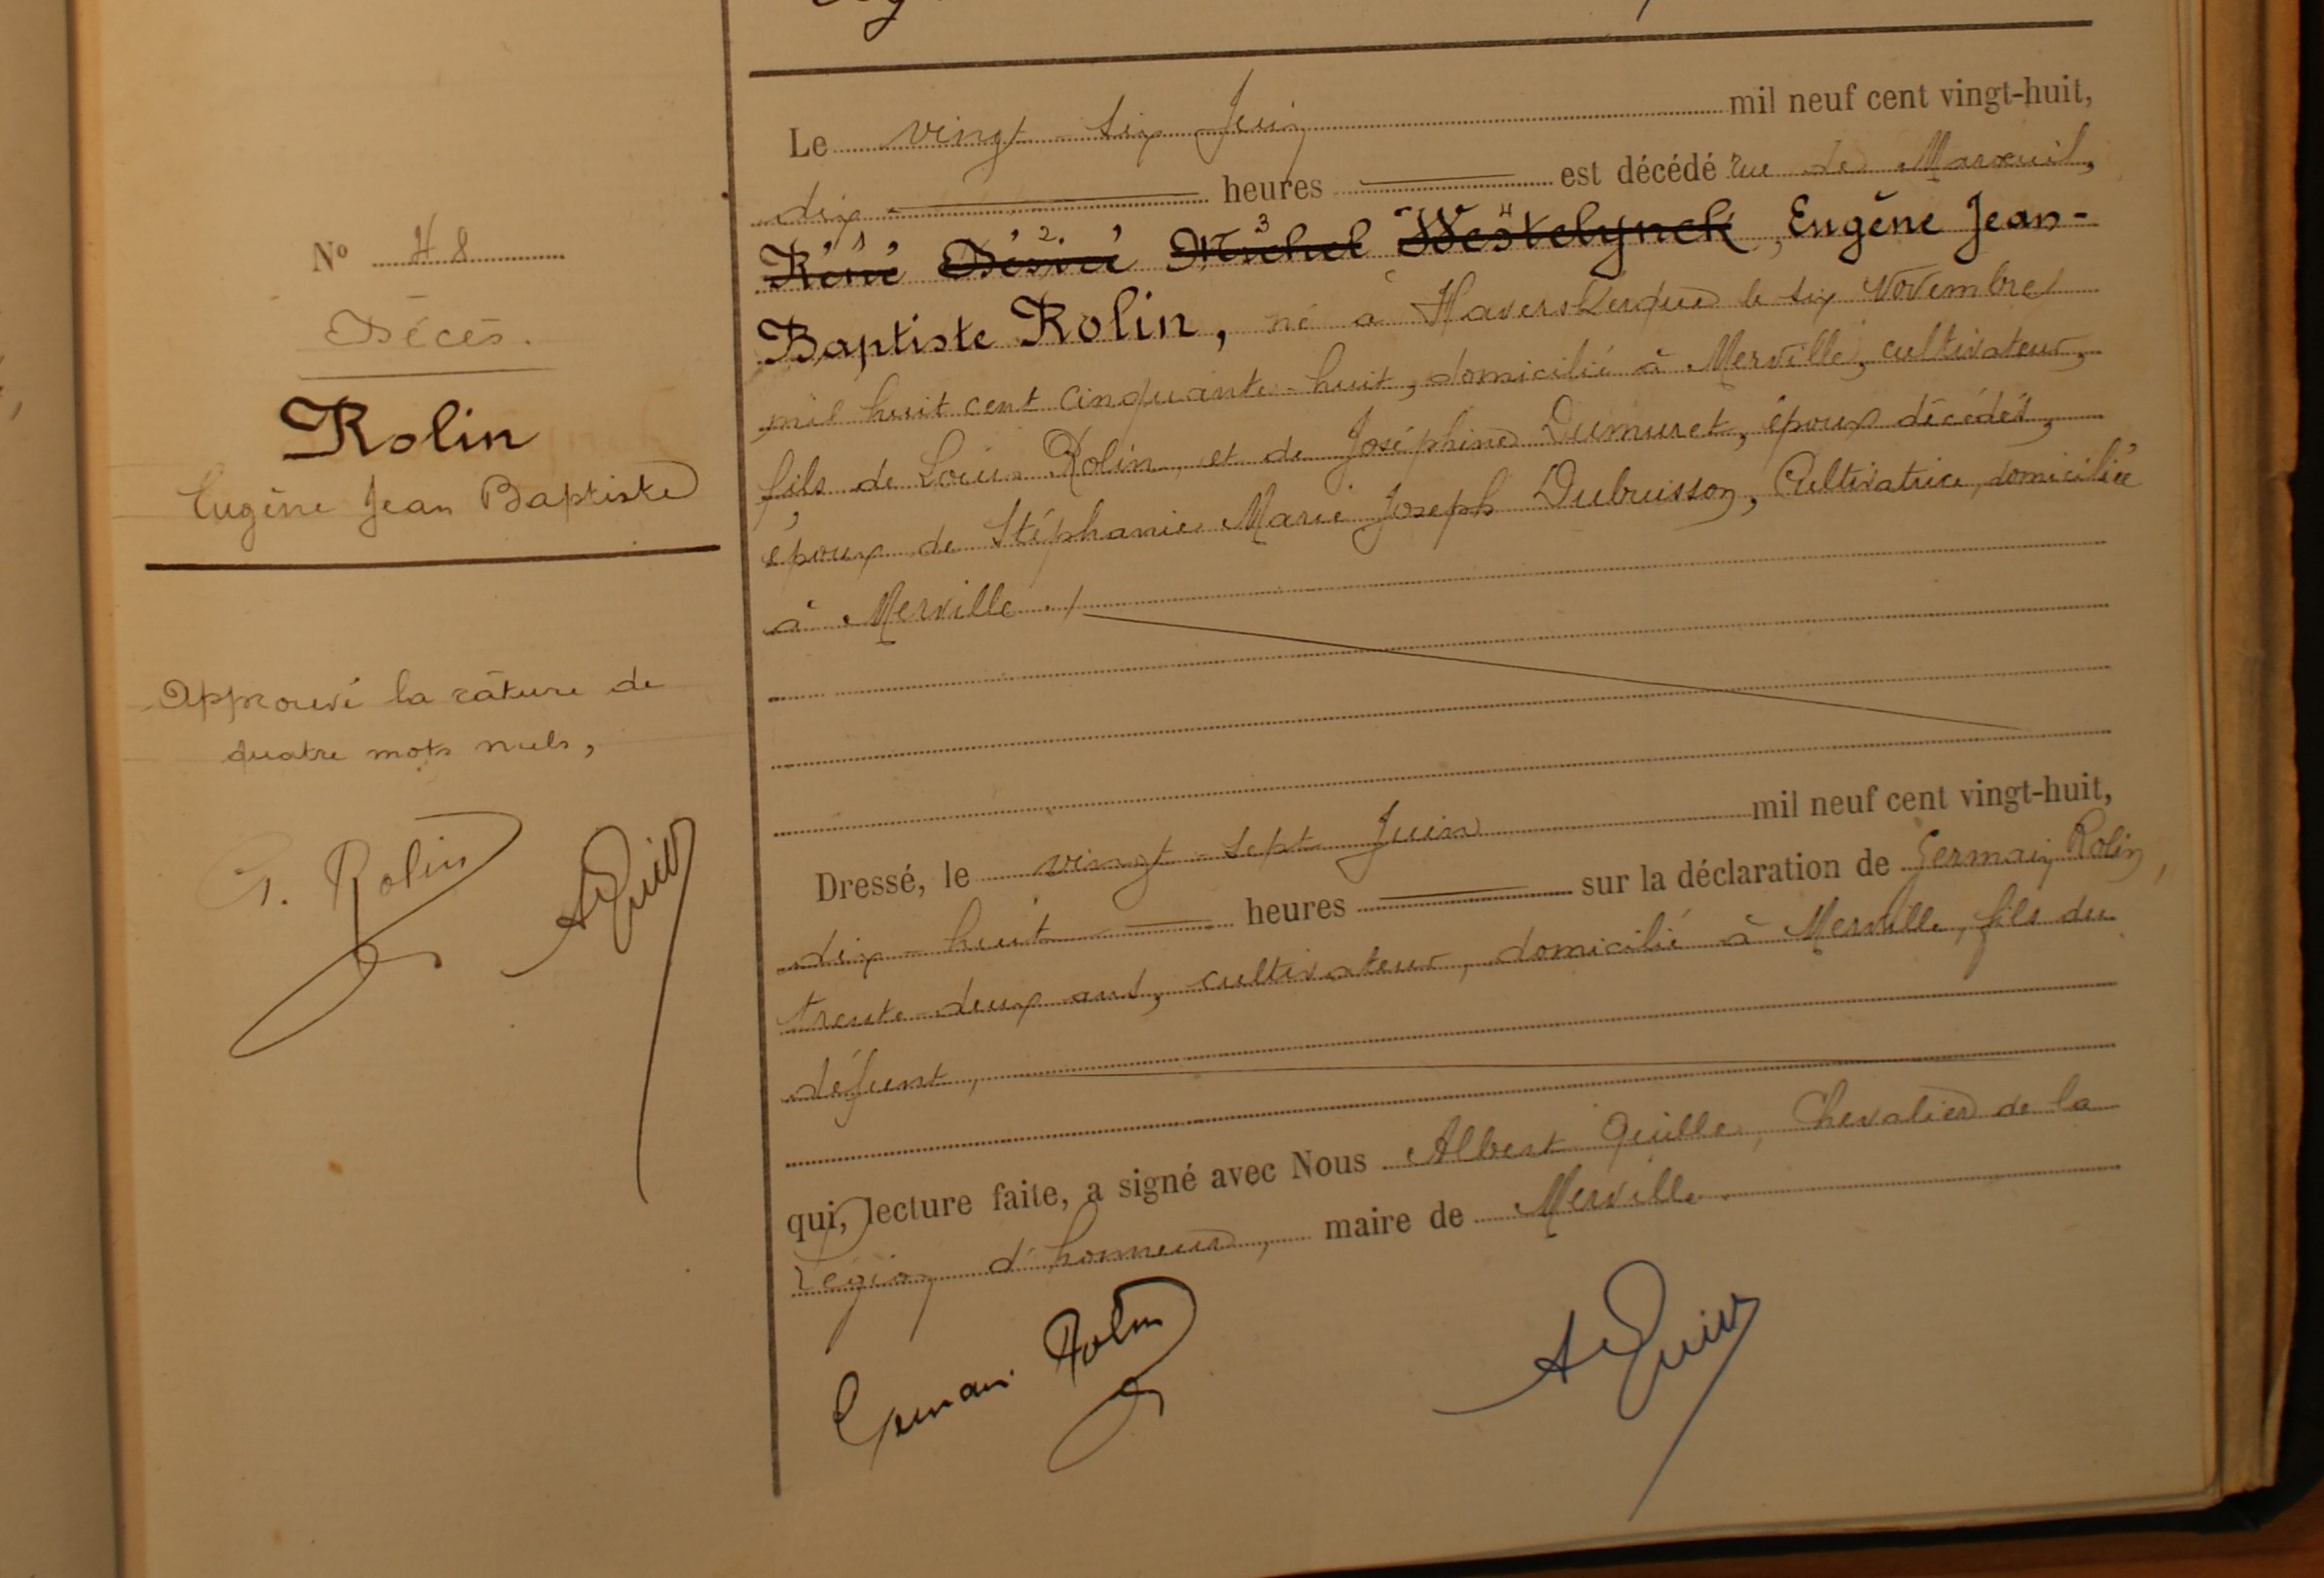 N° 48
Décès.
Rolin
Eugène Jean Baptiste
Approuvé la râture de
quatre mots nuls,
G. Rolin
Le vingt-six Juin mil neuf cent vingt-huit,
dix heures est décédé rue de Mareuil,
René Désiré Michel Westelynck, Eugène Jean-
1 2 3 4
Baptiste Rolin, né à Haverskerque le six Novembre
mil huit cent cinquante-huit, domicilié à Merville, cultivateur,
fils de Louis Rolin, et de Joséphine Dumuret, époux décédés,
époux de Stéphanie Marie Joseph Dubruisson, Cultivatrice, domiciliée
à Merville ./
Dressé, le vingt-sept Juin mil neuf cent vingt-huit,
dix-huit heures sur la déclaration de Germain Rolin,
trente-deux ans, cultivateur, domicilié à Merville, fils du
défunt,
qui, lecture faite, a signé avec Nous Albert Quille, Chevalier de la
Légion d'honneur, maire de Merville.
Germain Rolin